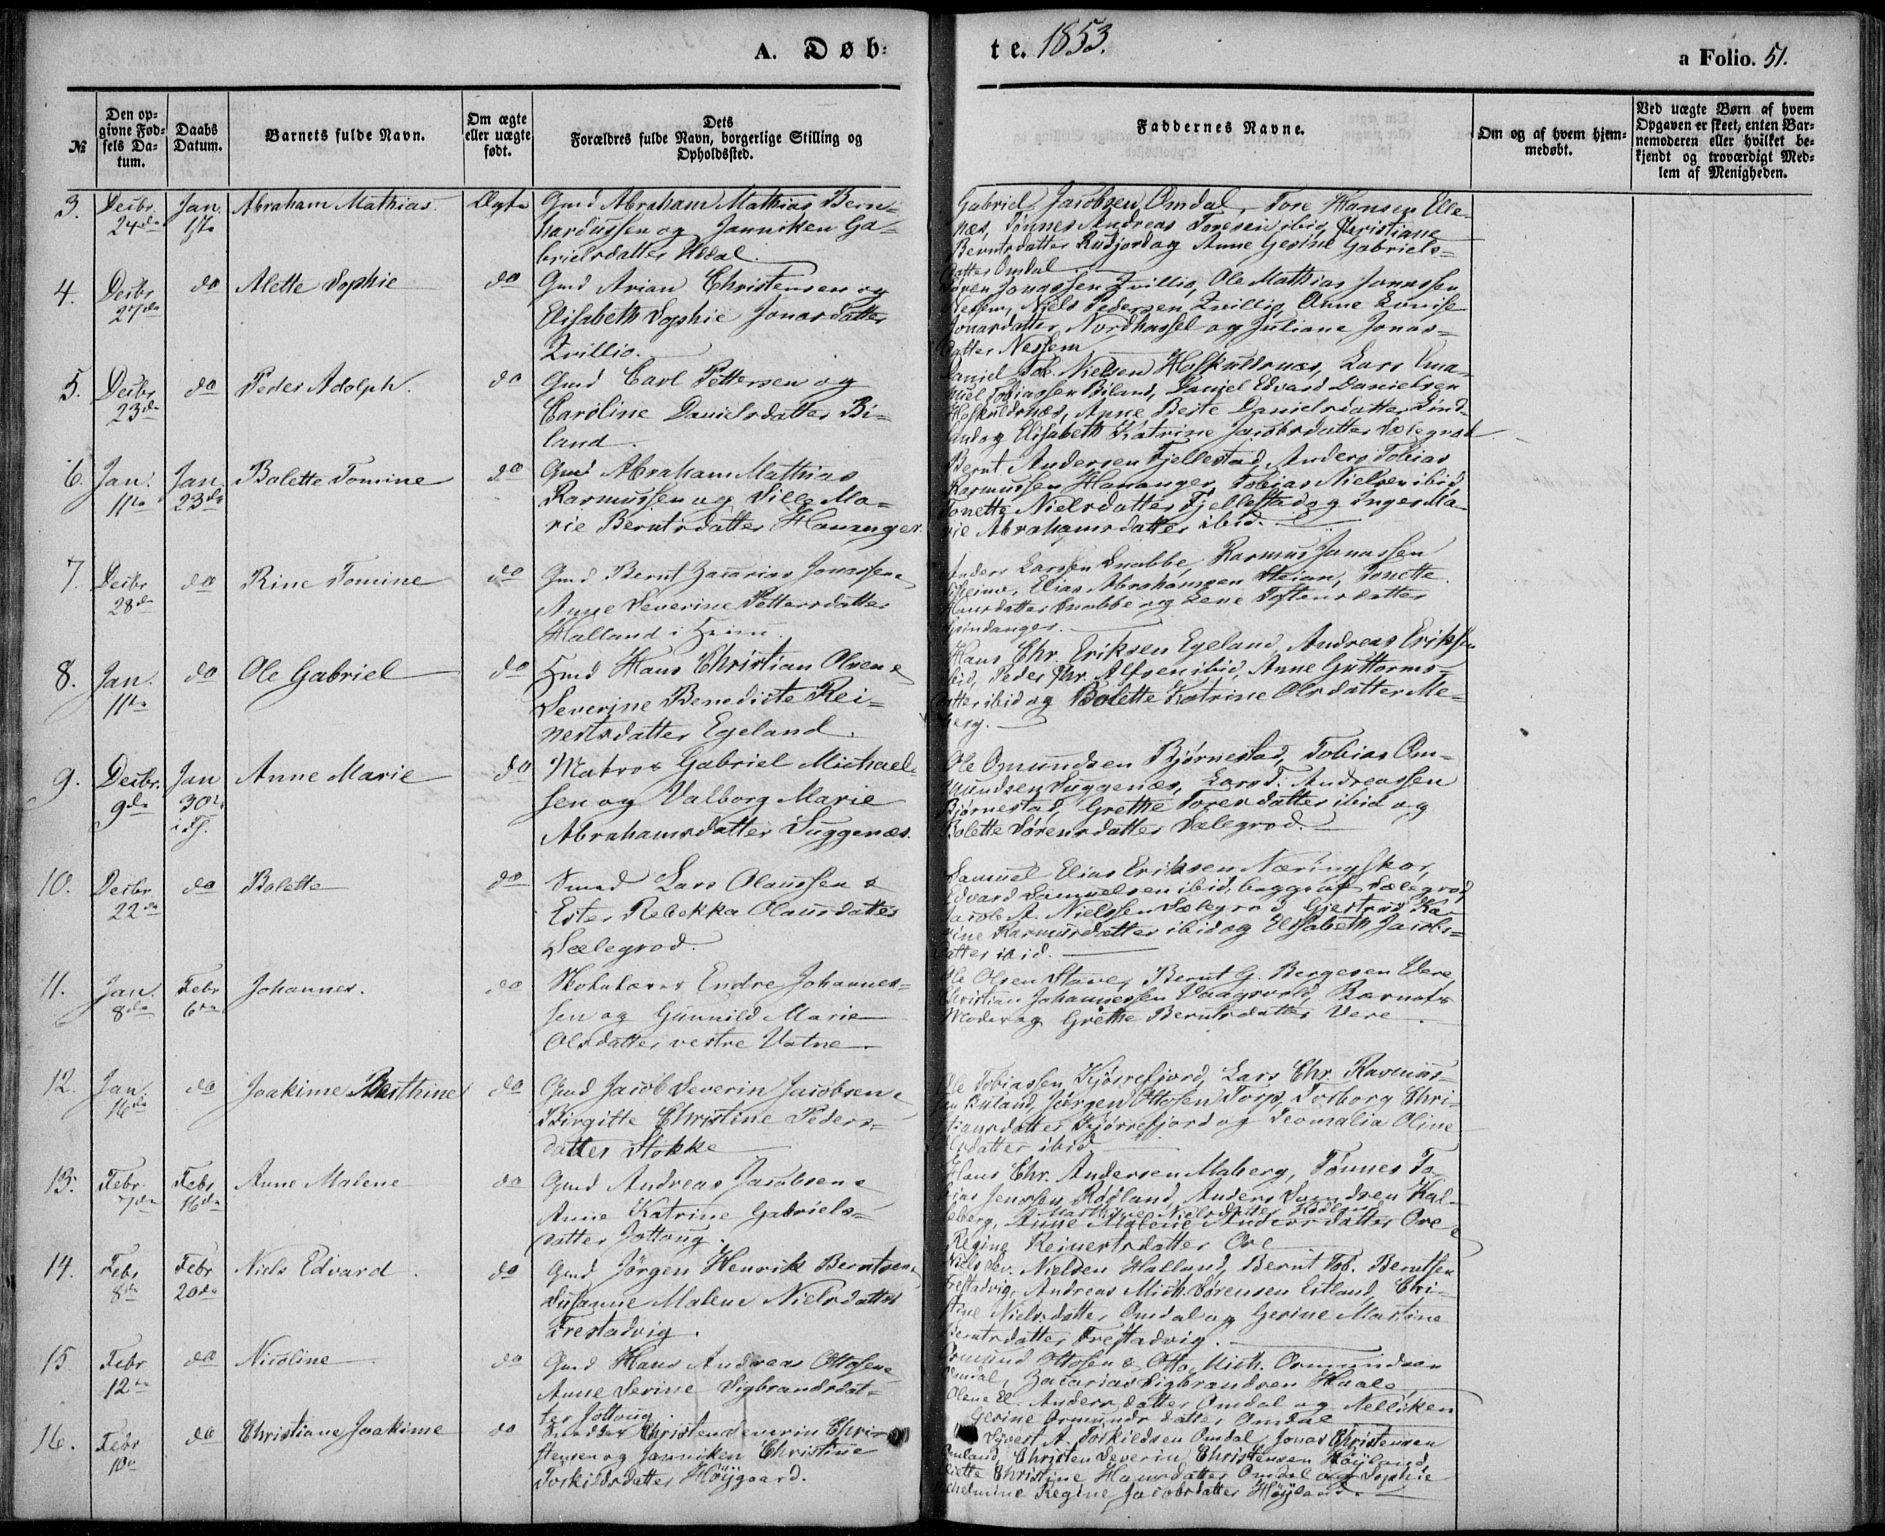 A. Døb-
te. 1853.
a Folio. 51.
№
Den op-
givne Fød-
sels Da-
tum.
Daabs
Datum.
Barnets fulde Navn.
Om ægte
eller uægte
født.
Dets
Forældres fulde Navn, borgerlige Stilling og
Opholdssted.
Faddernes Navne.
Om og af hvem hjem-
medøbt.
Ved uægte Børn af hvem
Opgaven er skeet, enten Bar-
nemoderen eller hvilket be-
kjendt og troværdigt Med-
lem af Menigheden.
3. Decbr 24de Jan. 17de Abraham Mathias Ægte Gmd Abraham Mathias Bern-
hardussen og Janniken Ga-
brielsdatter Uddal.
Gabriel Jacobsen Omdal, Tore Hansen Elle-
næs, Tønnes Andreas Toresen ibid, Christiane
Berntsdatter Rudjord og Anne Gesine Gabriels-
datter Omdal
4. Decbr 27de do Alette Sophie do Gmd Arian Christensen og
Elisabeth Sophie Jonasdatter
Qvillio.
Søren Jonassen Qvillio, Ole Mathias Jonassen
Nessem, Niels Pedersen Qvillio, Anne Lovise
Jonasdatter Nordhassel og Juliane Jonas-
datter Nessem
5. Decbr 23de do Peder Adolph. do Gmd Carl Pettersen og
Caroline Danielsdatter Bi-
land.
Daniel Tob. Nielsen Høskuldsnæs, Lars Ema-
nuel Tobiassen Biland, Daniel Edvard Danielsen
Høskuldsnæs, Anne Berte Danielsdatter Lind-
land og Elisabeth Katrine Jacobsdatter Sælegrod
6. Jan. 11te Jan 23de Bolette Tomine do Gmd Abraham Mathias
Rasmussen og Sille Ma-
rie Berntsdatter Hananger.
Bernt Andersen Fjellestad, Anders Tobias
Rasmussen Hananger, Tobias Nielsen ibid
Tonette Nielsdatter Fjellestad og Inger Ma-
rie Abrahamsdatter ibid.
7. Decbr 28de do Rine Tomine do Gmd Bernt Zacarias Jonassen &
Anne Severine Pettersdatter
Halland i Heim.
Anders Larssen Snabbe, Rasmus Jonassen
Elias Abrahamsen Steian, Tonette
Hansdatter Snabbe og Lene Tostensdatter
Grindanger.
8. Jan. 11te do Ole Gabriel do Hmd Hans Christian Olsen &
Severine Benedicte Rei-
nertsdatter Egeland.
Hans Chr. Eriksen Egeland, Andreas Eriksen
ibid, Peder Chr. Alfsen ibid, Anne Guttorms-
datter ibid og Bolette Katrine Olsdatter Me-
berg.
9. Decbr. 9de Jan 30te i Fj. Anne Marie do Matros Gabriel Michael-
sen og Valborg Marie
Abrahamsdatter Duggenæs.
Ole Omundsen Bjørnestad, Tobias Om-
mundsen Duggenæs, Lars T. Andreassen
Bjørnestad, Grethe Toresdatter ibid og
Bolette Sørensdatter Sælegrod.
10. Decbr 22de do Bolette do Smed Lars Olaussen &
Ester Rebekka Olausdatter
Sælegrod.
Samuel Elias Eriksen Næringskor,
Edvard Samuelsen ibid, begge af Sælegrod,
Jacob A. Nielssen Sælegrod Gjertrud Ka-
rine Rasmusdatter ibid og Elisabeth Jacobs-
datter ibid.
11. Jan. 8de Febr 6te Johannes. do Skolelærer Endre Johannes-
sen og Gunnild Marie
Olsdatter vestre Vatne.
Ole Olsen Stave, Bernt G. Bergesen Vere,
Christian Johannessen Vaagsvold, Barnets
Moder og Grethe Berntsdatter Vere.
12. Jan. 16de do Joakime Berthine do Gmd Jacob Severin Jacobsen &
Birgitte Christine Peders-
datter Stokke
Ole Tobiassen Kjørrefjord, Lars Chr. Rasmus-
sen Buland, Jørgen Ottosen Torp, Torborg Chri-
stiansdatter Kjørrefjord og Teomalia Oline
Olsdatter ibid.
13. Febr. 7de Febr 16de Anne Malene do Gmd Andreas Jacobsen &
Anne Katrine Gabriels-
datter Jøttoug.
Hans Chr. Andersen Maberg, Tønnes To-
bias Jenssen Rødland, Anders Svendsen Kal-
leberg, Marthine Nielsdatter Rødland
Anne Malene Andersdatter Ore &
Regine Reinertsdatter Ore
14. Febr 8de Febr 20de Niels Edvard. do Gmd Jørgen Henrik Berntsen &
Susanne Malene Nielsdatter
Frestadvig.
Niels Sev. Nielsen Halland, Bernt Tob. Berntsen
Frestadvig, Andreas Mich. Sørensen Eitland, Chri-
stine Nielsdatter Omdal og Gesine Martine
Berntsdatter Frestadvig.
15. Febr 12te do Nicoline do Gmd Hans Andreas Ottosen &
Anne Serine Sigbrandsdat-
ter Jøttoug
Omund Ottosen & Otto Mich. Ommundsen
Omdal, Zacarias Sigbrandsen Haale
Olene El. Andersdatter Omdal og Nelliken
Gesine Omundsdatter Omdal
16. Febr 10de do Christiane Joakime do Christen Severin Chri-
stensen og Janniken Christine
Torkildsdatter Høygaard.
Sjvert A. Torkildsen Omdal, Jonas Christensen
Christen Severin Christensen Høyland,
Christine Hansdatter Omdal og Sophie
Regine Jacobsdatter Høyland.